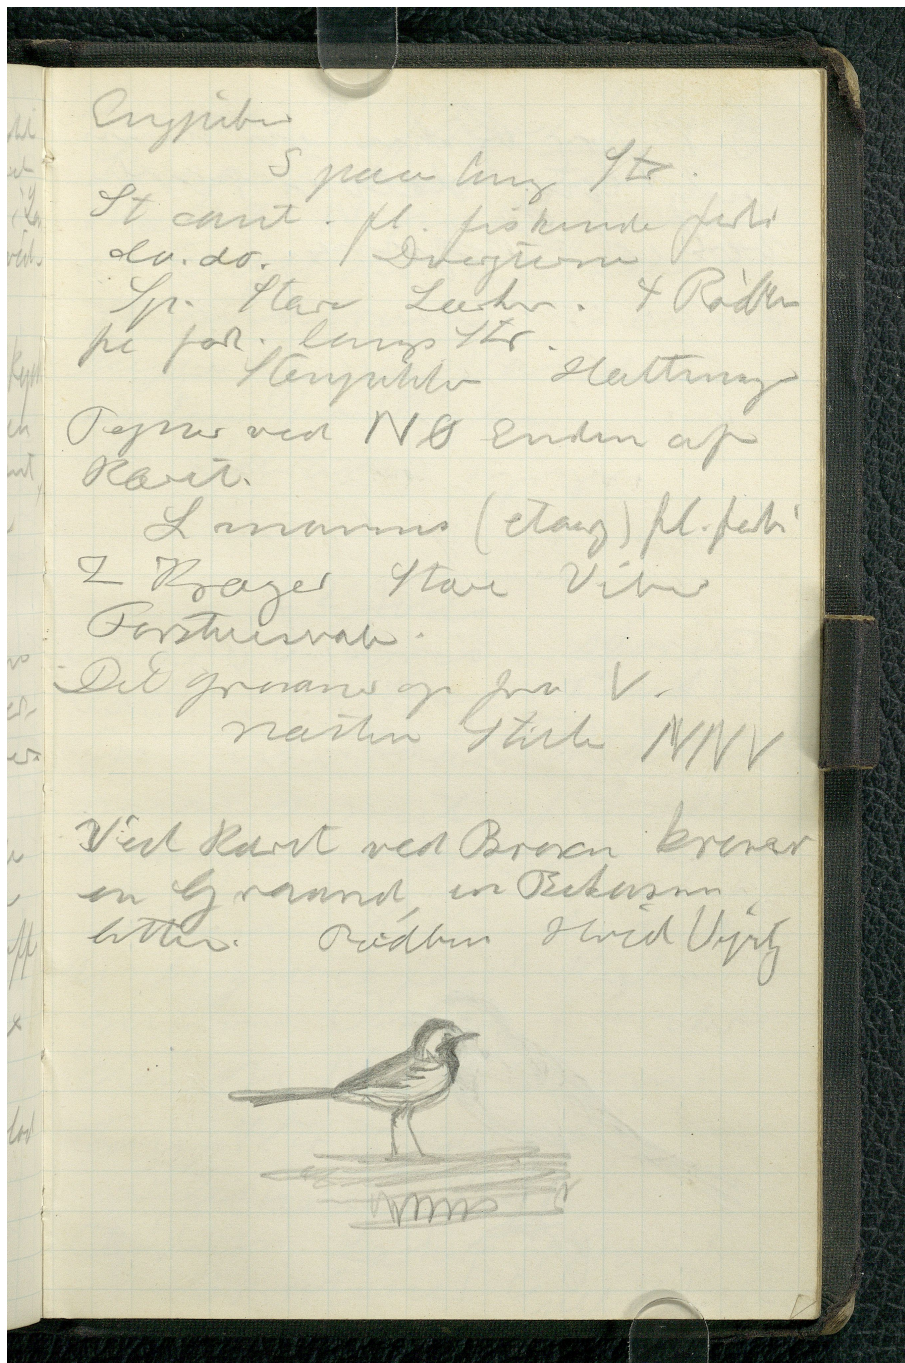 Engpiber
S paa lang Str.
St cant. fl. fiskende forbi
do. do. 1 Dvergterne
Spr. Stare Lærker. 4 Rødben
paa lang Str.
Stenpikker Hættemaage
Tegner ved NØ Enden af
Kæret.
L marinus (etaarig) fl. forbi
2 Krager Stare Viber
Forstuesvale.
Det graaner op fra V.
næsten Stille NNV
Ved Kæret ved Broen kræver
en Graaand, en Bekasin
letter. Rødben Hvid Vipstj